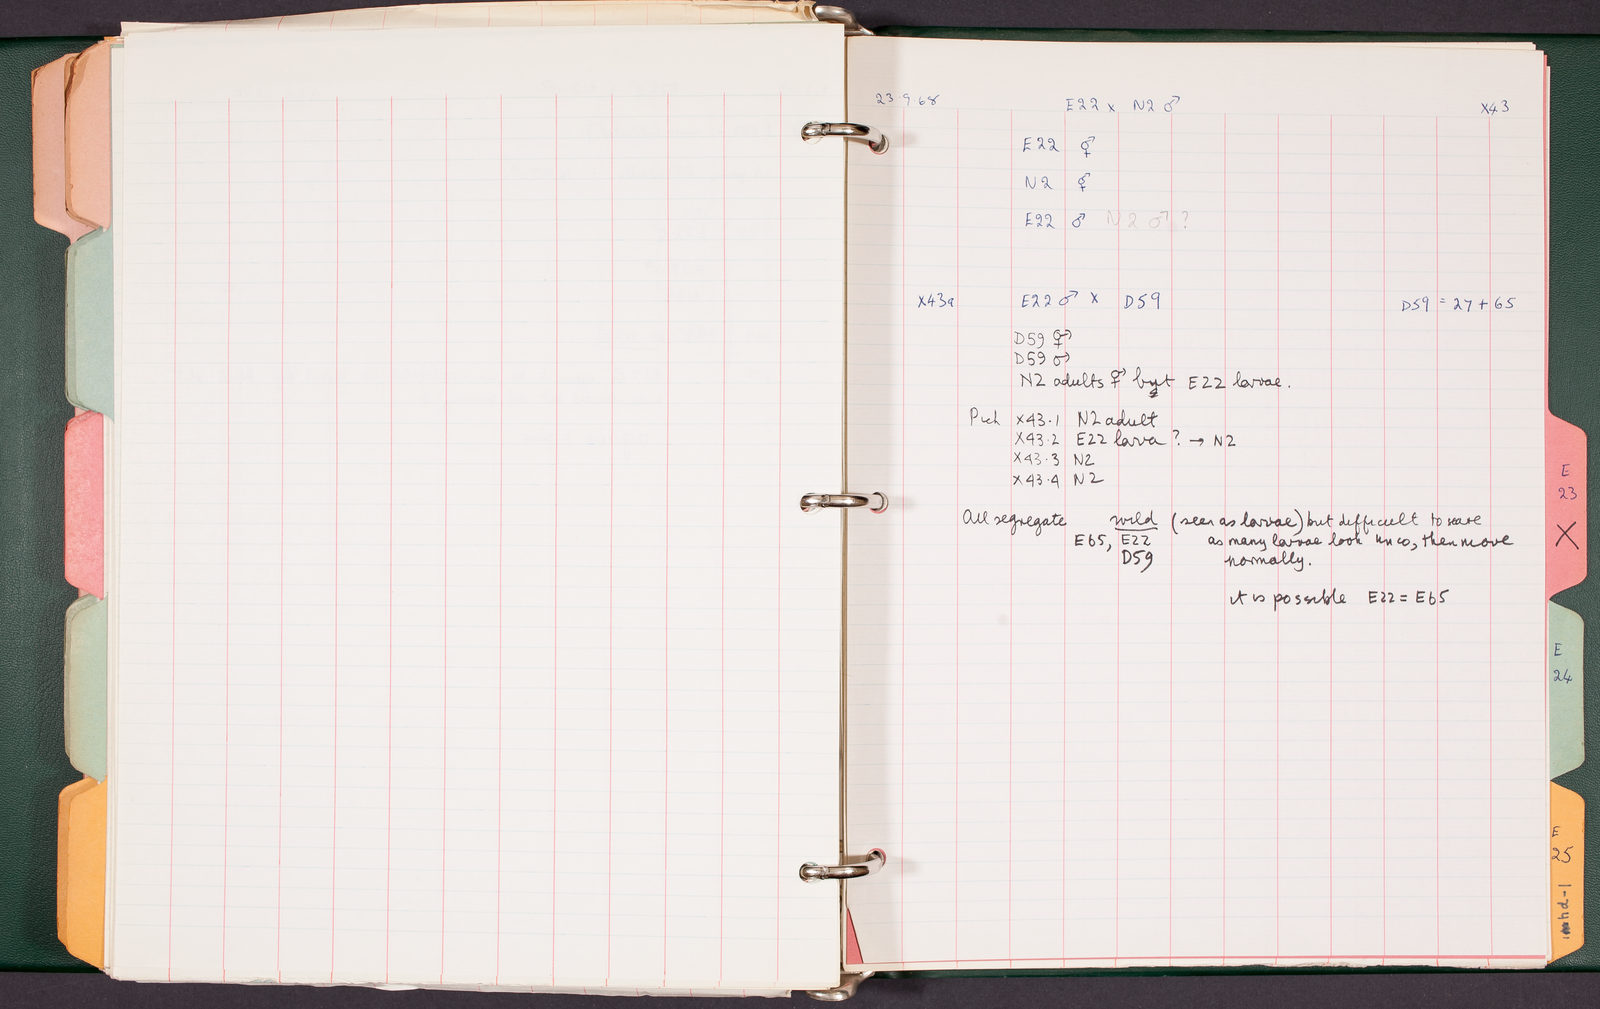 23.9.68 E22 x N2 ♂ X43
E22 ⚥
N2 ⚥
E22 ♂ N2 ♂ ?
X43a E22 ♂ x D59 D59 = 27 + 65
D59 ⚥
D59 ♂
N2 adults ⚥ but E22 larvae.
Pick X43.1 N2 adult
X43.2 E22 larva? → N2
X43.3 N2
X43.4 N2
All segregate wild (seen as larvae) but difficult to
E65, E22 as many larvae look unco, then move
D59 normally.
it is possible E22 = E65
E
23
X
E
24
E
25